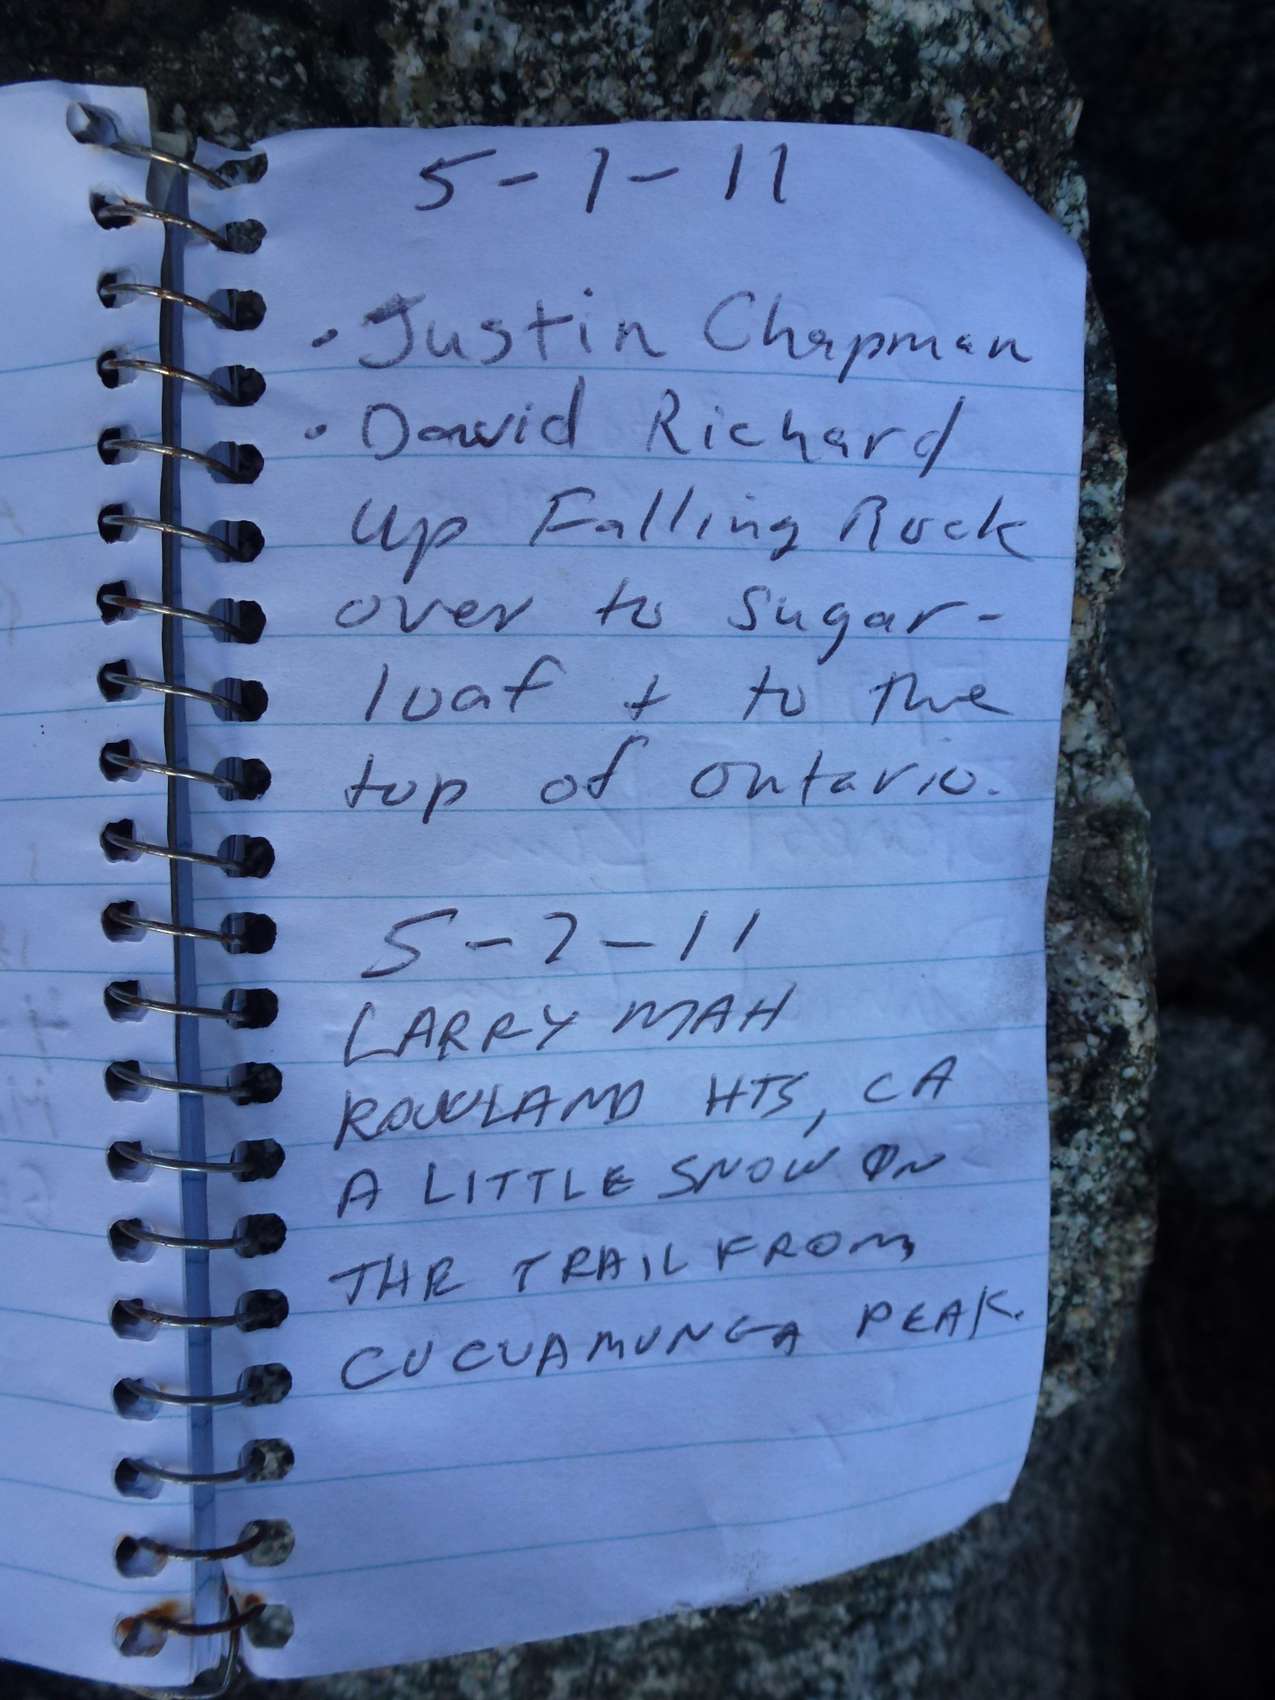 5-1-11
• Justin Chapman
• David Richard
up Falling Rock
over to Sugar-
loaf + to the
top of Ontario.
5-2-11
LARRY MAH
ROWLAND HTS, CA
A LITTLE SNOW ON
THE TRAIL FROM
CUCUAMUNGA PEAK.